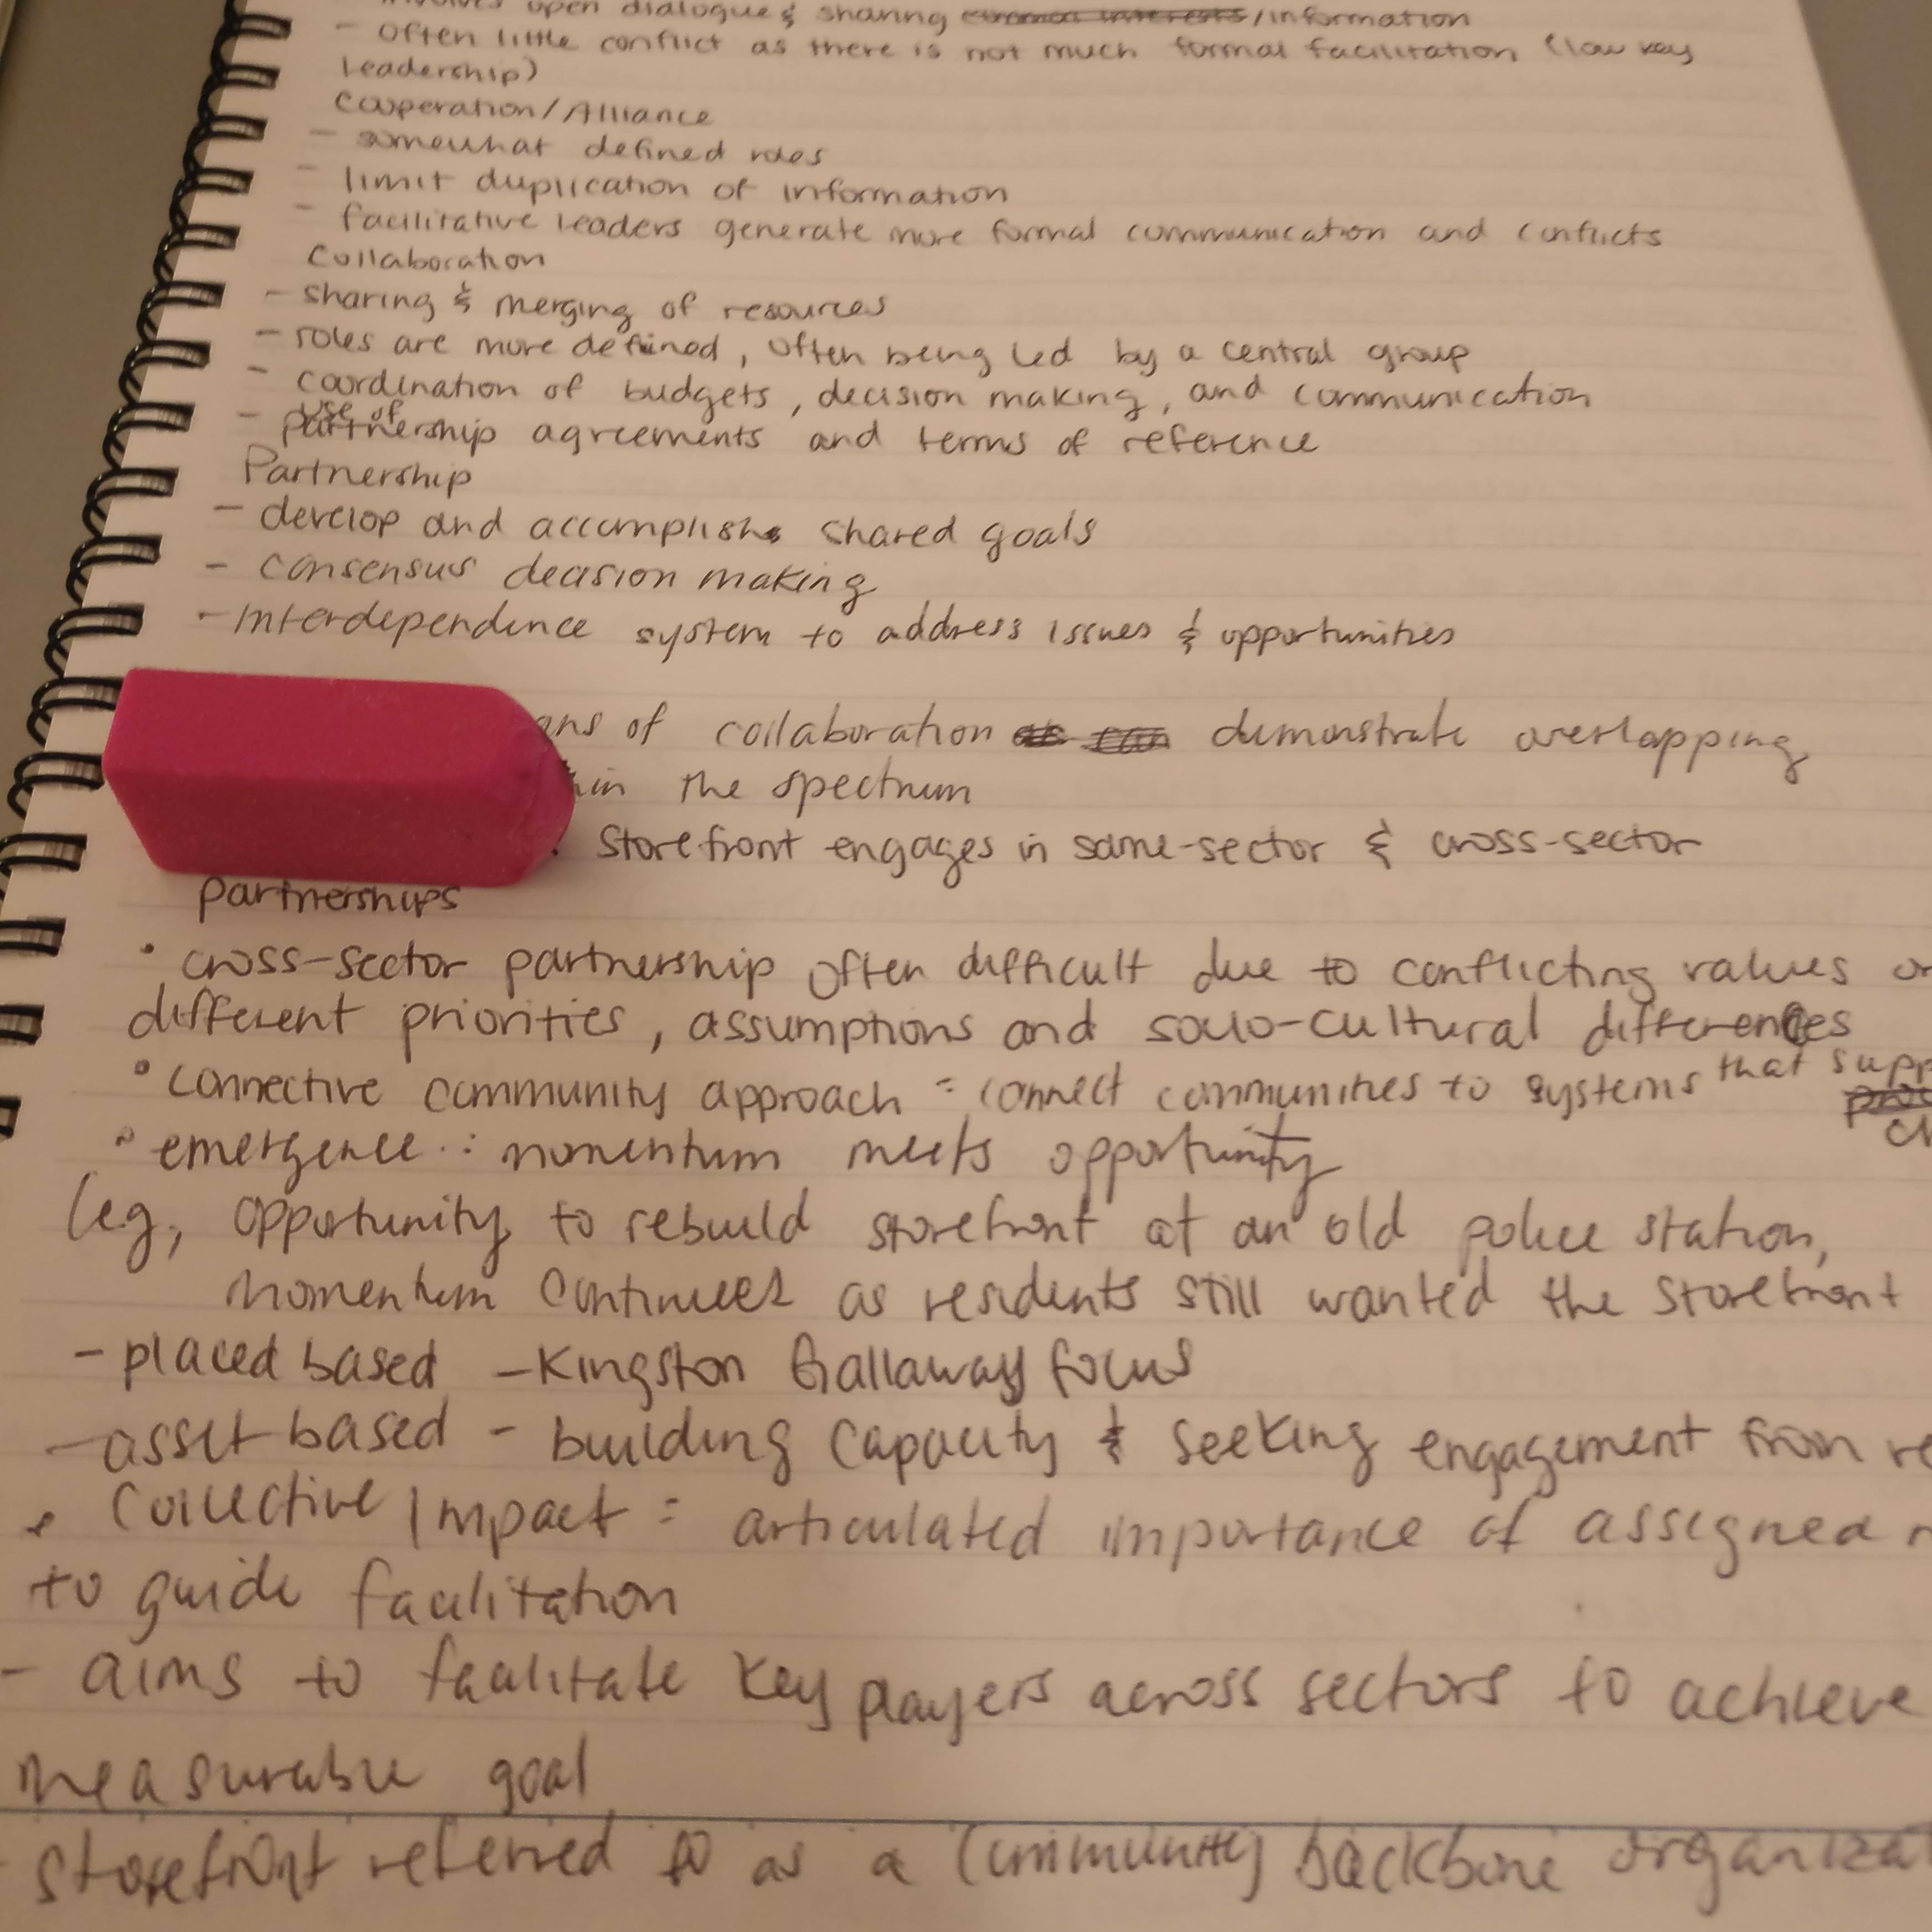 involves open dialogue & sharing /information
- Often little conflict as there is not much formal facilitation (low key
leadership)
Cooperation/Alliance
- somewhat defined roles
- limit duplication of information
- facilitative leaders generate more formal communication and conflicts
Collaboration
- sharing & merging of resources
- roles are more defined, often being led by a central group
- coordination of budgets, decision making, and communication
use of
- partnership agreements and terms of reference
Partnership
- develop and accomplish shared goals
- consensus decision making
- Interdependence system to address issues & opportunities
of collaboration demonstrate overlapping
the spectrum
Storefront engages in same-sector & cross-sector
partnerships
• cross-sector partnership often difficult due to conflicting values
different priorities, assumptions and socio-cultural differences
• connective community approach = connect communities to systems that
• emergence : momentum meets opportunity
(eg, opportunity to rebuild storefront at an old police station,
momentum continued as residents still wanted the storefront
- placed based - Kingston Gallaway focus
- asset based - building capacity & seeking engagement from
• Collective Impact = articulated importance of assigned
to guide facilitation
- aims to facilitate key players across sectors to achieve
measurable goal
- storefront referred to as a community backbone